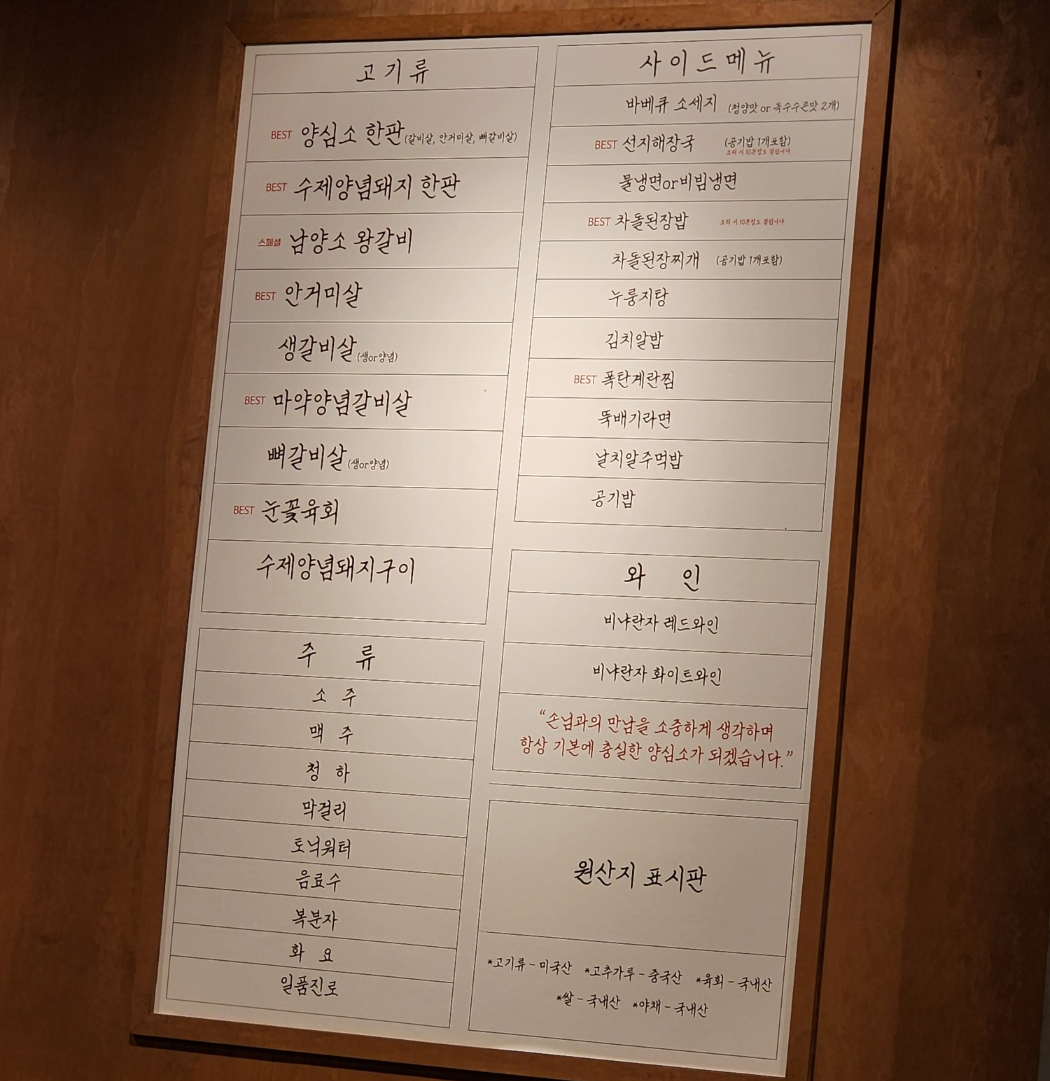 고기류
BEST 양심소 한판 (갈비살, 안거미살, 뼈갈비살)
BEST 수제양념돼지 한판
스페셜 남양소 왕갈비
BEST 안거미살
생갈비살 (생or양념)
BEST 마약양념갈비살
뼈갈비살 (생or양념)
BEST 눈꽃육회
수제양념돼지구이
주 류
소 주
맥 주
청 하
막걸리
토닉워터
음료수
복분자
화 요
일품진로
사이드메뉴
바베큐 소세지 (청양맛 or 옥수수콘맛 2개)
BEST 선지해장국 (공기밥 1개포함)
조리 시 10분정도 걸립니다
물냉면or비빔냉면
BEST 차돌된장밥 조리 시 10분정도 걸립니다
차돌된장찌개 (공기밥 1개포함)
누룽지탕
김치알밥
BEST 폭탄계란찜
뚝배기라면
날치알주먹밥
공기밥
와 인
비냐란자 레드와인
비냐란자 화이트와인
“손님과의 만남을 소중하게 생각하며
항상 기본에 충실한 양심소가 되겠습니다.”
원산지 표시판
*고기류 - 미국산 *고추가루 - 중국산 *육회 - 국내산
*쌀 - 국내산 *야채 - 국내산